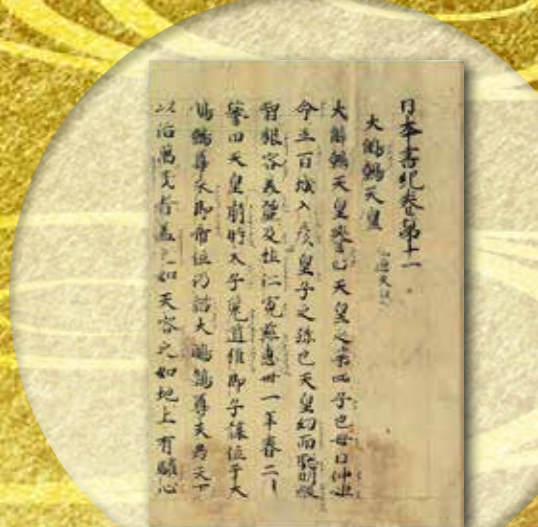 日本書紀卷第十一
大鷦鷯天皇 仁德天皇
大鷦鷯天皇譽田天皇之第四子也母曰仲姬
命五百城入彦皇子之孫也天皇幼而聡明叡
智貌容美麗及壮仁寛慈惠卌一年春二月
譽田天皇崩時太子菟道稚郎子讓位于大
鷦鷯尊未即帝位仍諮大鷦鷯尊夫君天下
以治萬民者蓋之如天容之如地上有驩心